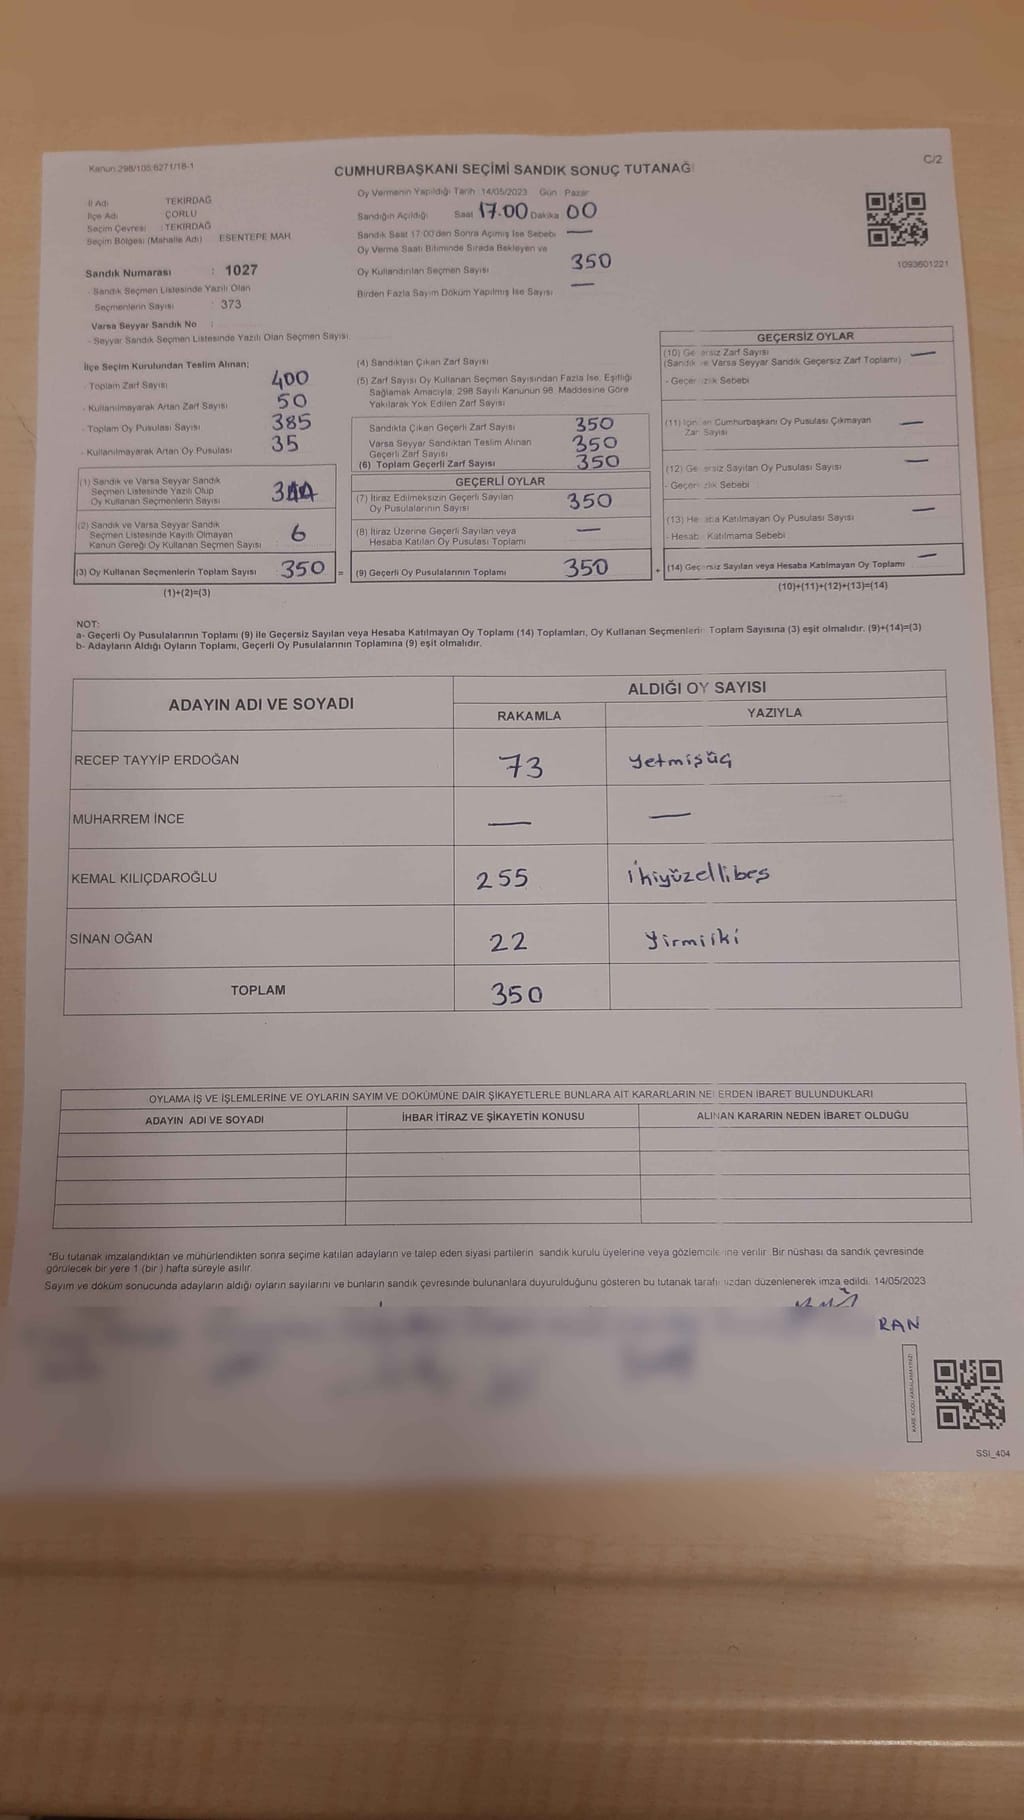 Kanun:298/105:6271/18-1
CUMHURBAŞKANI SEÇİMİ SANDIK SONUÇ TUTANAĞI
C/2
İl Adı : TEKİRDAĞ
İlçe Adı : ÇORLU
Seçim Çevresi : TEKİRDAĞ
Seçim Bölgesi (Mahalle Adı) ESENTEPE MAH.
Sandık Numarası : 1027
- Sandık Seçmen Listesinde Yazılı Olan
Seçmenlerin Sayısı : 373
Varsa Seyyar Sandık No :
- Seyyar Sandık Seçmen Listesinde Yazılı Olan Seçmen Sayısı:
Oy Vermenin Yapıldığı Tarih :14/05/2023 Gün : Pazar
Sandığın Açıldığı Saat 17.00 Dakika 00
Sandık Saat 17:00'den Sonra Açımış İse Sebebi —
Oy Verme Saati Bitiminde Sırada Bekleyen ve
Oy Kullandırılan Seçmen Sayısı 350
Birden Fazla Sayım Döküm Yapılmış İse Sayısı —
1093601221
İlçe Seçim Kurulundan Teslim Alınan;
- Toplam Zarf Sayısı 400
- Kullanılmayarak Artan Zarf Sayısı 50
- Toplam Oy Pusulası Sayısı 385
- Kullanılmayarak Artan Oy Pusulası 35
(1) Sandık ve Varsa Seyyar Sandık
Seçmen Listesinde Yazılı Olup
Oy Kullanan Seçmenlerin Sayısı 344
(2) Sandık ve Varsa Seyyar Sandık
Seçmen Listesinde Kayıtlı Olmayan
Kanun Gereği Oy Kullanan Seçmen Sayısı 6
(3) Oy Kullanan Seçmenlerin Toplam Sayısı 350 =
(1)+(2)=(3)
(4) Sandıktan Çıkan Zarf Sayısı
(5) Zarf Sayısı Oy Kullanan Seçmen Sayısından Fazla İse, Eşitliği
Sağlamak Amacıyla, 298 Sayılı Kanunun 98. Maddesine Göre
Yakılarak Yok Edilen Zarf Sayısı
Sandıkta Çıkan Geçerli Zarf Sayısı 350
Varsa Seyyar Sandıktan Teslim Alınan
Geçerli Zarf Sayısı 350
(6) Toplam Geçerli Zarf Sayısı 350
GEÇERLİ OYLAR
(7) İtiraz Edilmeksizin Geçerli Sayılan
Oy Pusulalarının Sayısı 350
(8) İtiraz Üzerine Geçerli Sayılan veya
Hesaba Katılan Oy Pusulası Toplamı —
(9) Geçerli Oy Pusulalarının Toplamı 350 +
GEÇERSİZ OYLAR
(10) Geçersiz Zarf Sayısı —
(Sandık ve Varsa Seyyar Sandık Geçersiz Zarf Toplamı)
- Geçersizlik Sebebi
(11) İçinden Cumhurbaşkanı Oy Pusulası Çıkmayan
Zarf Sayısı —
(12) Geçersiz Sayılan Oy Pusulası Sayısı —
- Geçersizlik Sebebi
(13) Hesaba Katılmayan Oy Pusulası Sayısı —
- Hesaba Katılmama Sebebi
(14) Geçersiz Sayılan veya Hesaba Katılmayan Oy Toplamı —
(10)+(11)+(12)+(13)=(14)
NOT:
a- Geçerli Oy Pusulalarının Toplamı (9) ile Geçersiz Sayılan veya Hesaba Katılmayan Oy Toplamı (14) Toplamları, Oy Kullanan Seçmenlerin Toplam Sayısına (3) eşit olmalıdır. (9)+(14)=(3)
b- Adayların Aldığı Oyların Toplamı, Geçerli Oy Pusulalarının Toplamına (9) eşit olmalıdır.
ADAYIN ADI VE SOYADI
ALDIĞI OY SAYISI
RAKAMLA YAZIYLA
RECEP TAYYİP ERDOĞAN 73 yetmişüç
MUHARREM İNCE — —
KEMAL KILIÇDAROĞLU 255 ikiyüzellibeş
SİNAN OĞAN 22 yirmiiki
TOPLAM 350
OYLAMA İŞ VE İŞLEMLERİNE VE OYLARIN SAYIM VE DÖKÜMÜNE DAİR ŞİKAYETLERLE BUNLARA AİT KARARLARIN NELERDEN İBARET BULUNDUKLARI
ADAYIN ADI VE SOYADI İHBAR İTİRAZ VE ŞİKAYETİN KONUSU ALINAN KARARIN NEDEN İBARET OLDUĞU
*Bu tutanak imzalandıktan ve mühürlendikten sonra seçime katılan adayların ve talep eden siyasi partilerin sandık kurulu üyelerine veya gözlemcilerine verilir. Bir nüshası da sandık çevresinde
görülecek bir yere 1 (bir ) hafta süreyle asılır.
Sayım ve döküm sonucunda adayların aldığı oyların sayılarını ve bunların sandık çevresinde bulunanlara duyurulduğunu gösteren bu tutanak tarafımızdan düzenlenerek imza edildi. 14/05/2023
RAN
KARE KODU KARALAMAYINIZ!
SSI_404